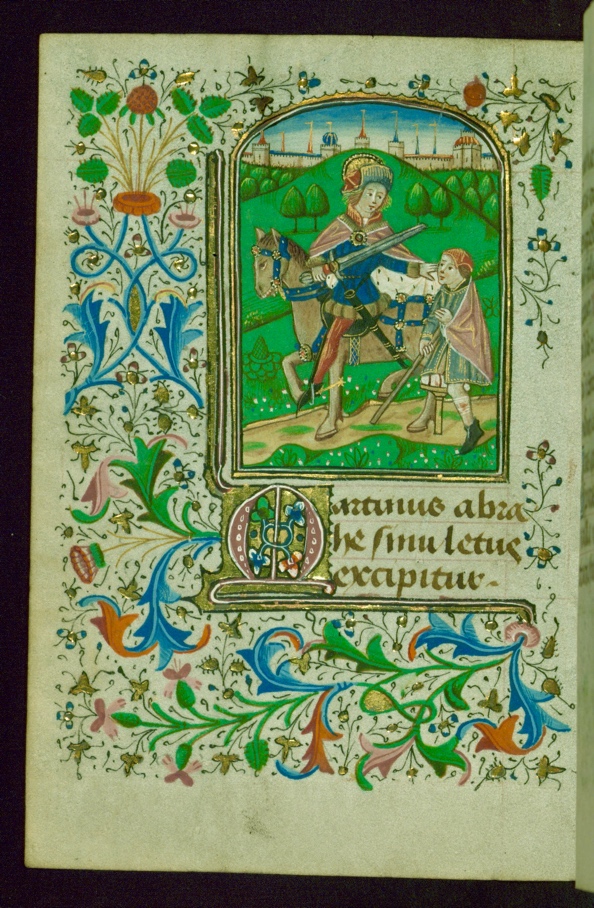 Martinus abra
he sinu letus
excipitur.